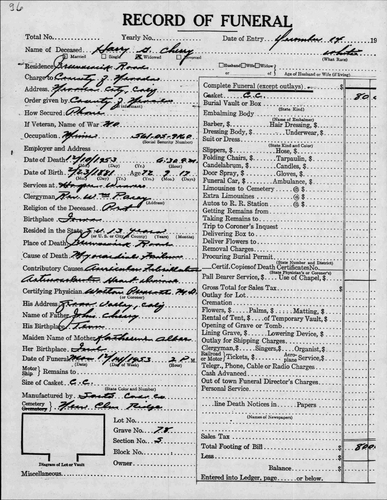 96
RECORD OF FUNERAL
Total No. Yearly No. Date of Entry 19
Name of Deceased Harry S. Cherry white
Married Single Widowed Divorced Husband Wife Widow (What Race)
Residence Road of Age of Husband or Wife (if living)
Charge to County of Nevada
Address Nevada City, Calif
Order given by County of Nevada
How Secured Phone
If Veteran, War of No
Occupation Miner 561-05-9160
(Social Security Number)
Employer and Address
Date of Death 12/10/1953 6:30 P.M.
Date of Birth 1881 Age 72 9 17
Services at
Clergyman Rev. Wm
Religion of the Deceased Prot
Birthplace Iowa
Resided in the State 13 years
Place of Death Road
Cause of Death Myocardial Failure
Contributory Causes Auricular Fibrillation
Arteriosclerotic Heart Disease
Certifying Physician M.D.
(or Coroner)
His Address Grass Valley, Calif
Name of Father John Cherry
His Birthplace Tenn
Maiden Name of Mother Katherine
Her Birthplace
Date of Funeral Mon. 12/14/1953 2 P.M.
Motor Ship Remains to
Size of Casket C.C.
(State Color and Number)
Manufactured by
Cemetery Crematory New Elm Ridge
Lot No.
Grave No. 78
Section No. 5
Block No.
Owner
Diagram of Lot or Vault
Miscellaneous
Complete Funeral (except outlays) $
Casket C.C. 80
Burial Vault or Box
(State Kind)
Embalming Body
(Name of Embalmer)
Barber, Hair Dressing, $
Dressing Body, $ Underwear, $
Suit or Dress
(State Kind and Color)
Slippers, $ Hose, $
Folding Chairs, $ Tarpaulin, $
Candelabrum, $ Candles, $
Door Spray, $ Gloves, $
Funeral Car, $ Ambulance, $
Limousines to Cemetery @ $
Extra Limousines @ $
Autos to R. R. Station @ $
Getting Remains from
Taking Remains to
Trip to Coroner's Inquest
Delivering Box to
Deliver Flowers to
Removal Charges
Procuring Burial Permit
(State Number and District)
Certif. Copies of Death Certificates No.
(State Physician's or Coroner's)
Pall Bearer Service, $ Use of Chapel, $
Gross Total for Sales Tax $
Outlay for Lot
Cremation
Flowers, $ Palms, $ Matting, $
Rental of Tent, $ of Temporary Vault, $
Opening of Grave or Tomb
Lining Grave, $ Lowering Device, $
Outlay for Shipping Charges
Clergyman, $ Singers, $ Organist, $
Railroad or Motor Tickets, $ Aeroplane Service, $
Telegr., Phone, Cable or Radio Charges
Cash Advanced
Out of town Funeral Director's Charges
Personal Service
line Death Notices in Papers
(Names of Newspapers)
Sales Tax
Total Footing of Bill $ 80
Less
Balance $
Entered into Ledger, page or below.